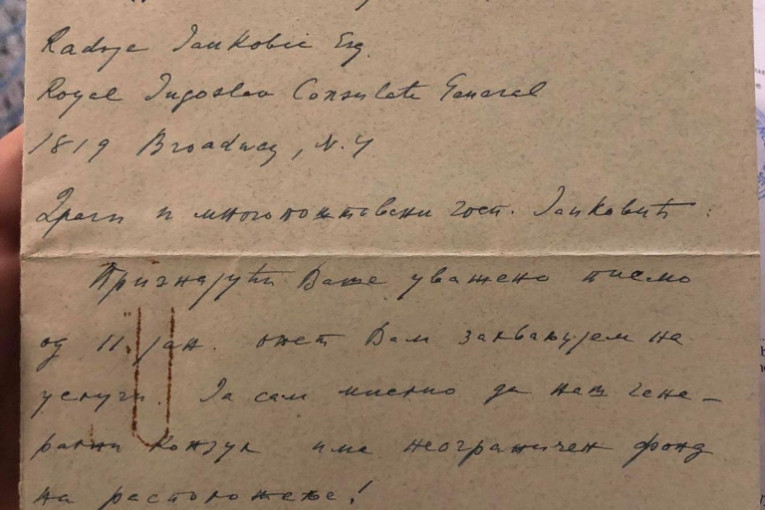 Radoje Jankovic Esq.
Royal Jugoslav Consulate General
1819 Broadway, N.Y
Драги и многопоштовани госп. Јанковић:
Признајући Ваше уважено писмо
од 11. јан. опет Вам захваљујем на
услузи. Ја сам мислио да наш гене-
рални Конзул има неограничен фонд
на расположење!